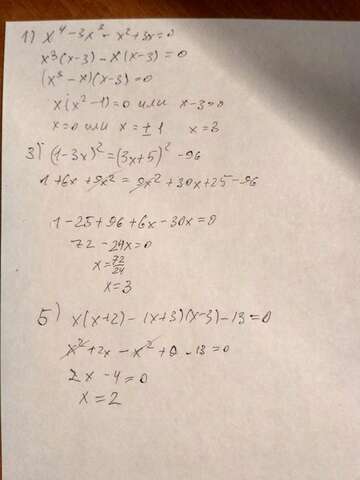 1) x⁴ - 3x³ - x² + 3x = 0
x³(x-3) - x(x-3) = 0
(x³ - x)(x-3) = 0
x(x²-1) = 0 или x-3=0
x=0 или x = ±1 x = 3
3) (1-3x)² = (3x+5)² - 96
1 + 6x + 9x² = 9x² + 30x + 25 - 96
1 - 25 + 96 + 6x - 30x = 0
72 - 24x = 0
x = 72/24
x = 3
5) x(x+2) - (x+3)(x-3) - 13 = 0
x² + 2x - x² + 9 - 13 = 0
2x - 4 = 0
x = 2